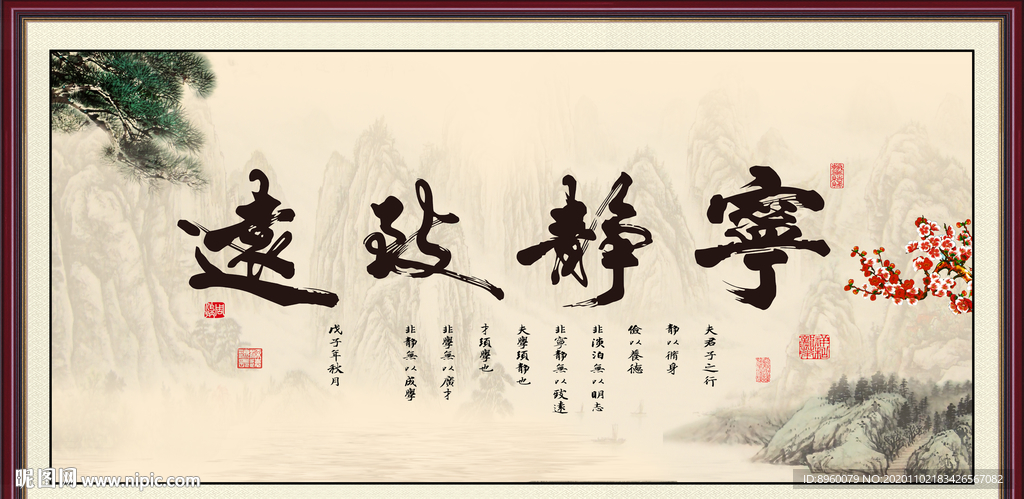 寧靜致遠
夫君子之行
靜以脩身
儉以養德
非淡泊無以明志
非寧靜無以致遠
夫學須靜也
才須學也
非學無以廣才
非靜無以成學
戊子年秋月
昵图网 www.nipic.com
ID:8960079 NO:20201102183426567082